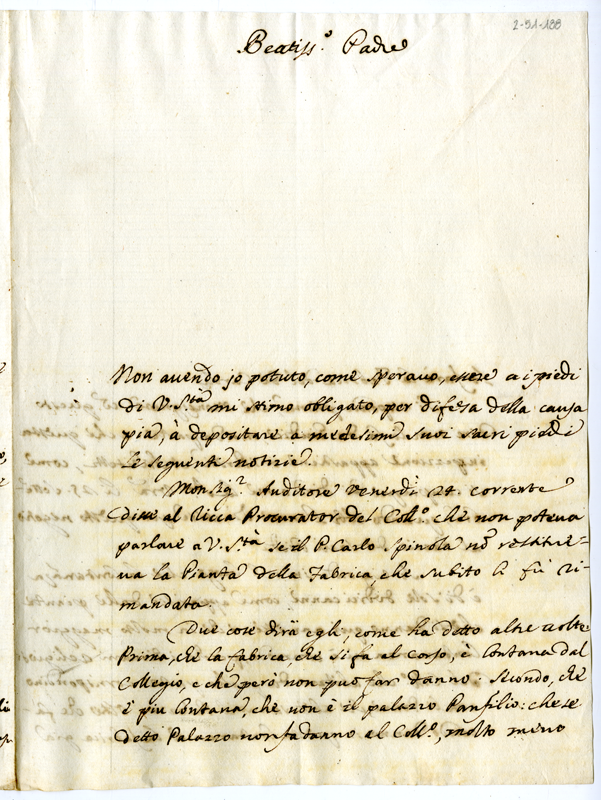 2-91-188
Beatiss.º Padre
Non avendo jo potuto, come speravo, essere a i piedi
di V. S.tà mi stimo obligato, per difesa della causa
pia, à depositare a medesimi suoi sacri piedi
le seguenti notizie.
Monsig.r Auditore Venerdì 24. corrente
disse al Ricca Procurator del Coll.º che non poteva
parlare a V. S.tà se il P. Carlo Spinola nõ restitui-
va la Pianta della Fabrica, che subito li fù ri-
mandata.
Due cose dirà egli, come ha detto altre volte
Prima, che la fabrica, che si fa al Corso, è lontana dal
Collegio, e che però non può far danno: Secondo, che
è più lontana, che non è il palazzo Panfilio: che se
detto Palazzo non fa danno al Coll.º, molto meno